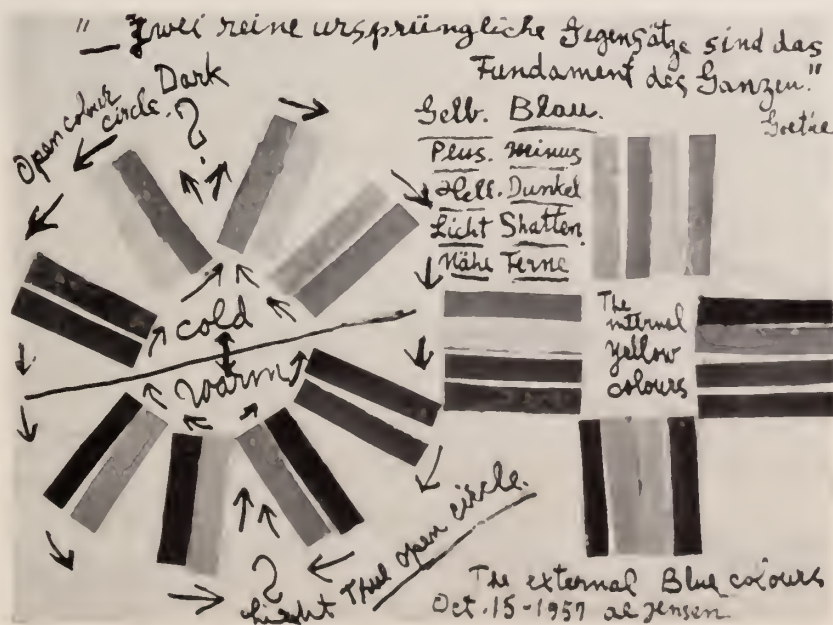 "— Zwei reine ursprüngliche Gegensätze sind das
Fundament des Ganzen."
Goethe
Open colour
circle.
Dark
?
Gelb. Blau.
Plus. Minus
Hell. Dunkel
Licht Shatten.
Nähe Ferne
cold
warm
The
internal
yellow
colours
?
Light
Thus open circle.
The external Blue colours
Oct. 15 - 1957 al jensen.